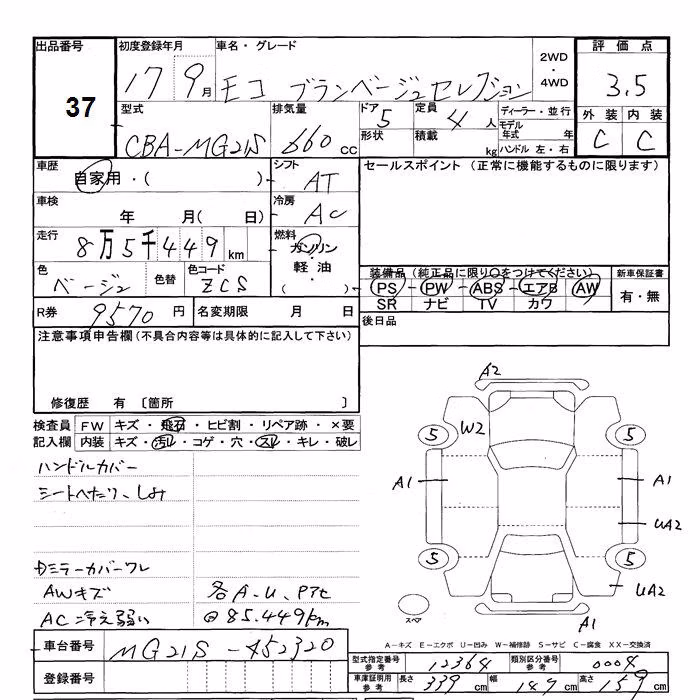 出品番号 初度登録年月 車名・グレード 2WD・4WD 評価点
37 17 9月 モコ ブランベージュセレクション 3.5
型式 排気量 ドア 定員 ディーラー・並行 外装 内装
CBA-MG21S 660cc 5 4人 モデル年式 年 C C
形状 積載 kg ハンドル 左・右
車歴 シフト セールスポイント (正常に機能するものに限ります)
自家用・( ) AT
車検 冷房
年 月( 日) AC
走行 燃料
8万5千449km ガソリン・軽油・( )
色 色替 色コード 装備品 (純正品に限り○をつけてください) 新車保証書
ベージュ ZCS PS PW ABS エアB AW 有・無
SR ナビ TV カワ
R券 9570円 名変期限 月 日 後日品
注意事項申告欄(不具合内容等は具体的に記入して下さい)
修復歴 有 〔箇所 〕
検査員 FW キズ・飛石・ヒビ割・リペア跡・×要
記入欄 内装 キズ・汚レ・コゲ・穴・スレ・キレ・破レ
ハンドルカバー
シートへたり、しみ
ミラーカバーワレ
AWキズ 各A・U、Pアセ
AC冷え弱い @85.449km
A2
5 W2 5
A1 A1
UA2
5 5
UA2
スペア A1
A-キズ E-エクボ U-凹み W-補修跡 S-サビ C-腐食 XX-交換済
車台番号 MG21S-452320
型式指定番号 参考 12364 類別区分番号 参考 0004
登録番号 車庫証明用 参考 長さ 339cm 幅 147cm 高さ 159cm